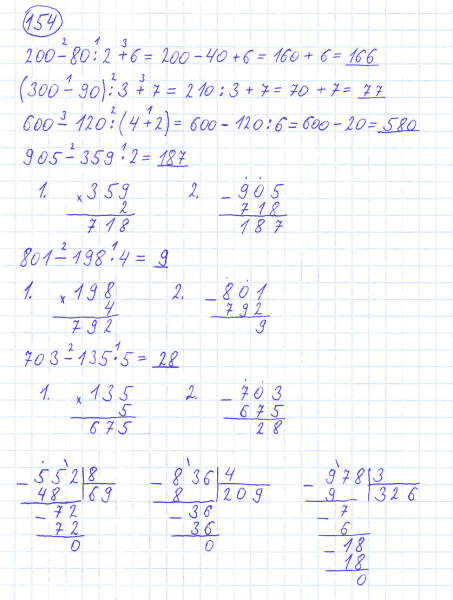 154
200 - 80 : 2 + 6 = 200 - 40 + 6 = 160 + 6 = 166
(300 - 90) : 3 + 7 = 210 : 3 + 7 = 70 + 7 = 77
600 - 120 : (4 + 2) = 600 - 120 : 6 = 600 - 20 = 580
905 - 359 · 2 = 187
1. × 359 2. - 905
2 718
718 187
801 - 198 · 4 = 9
1. × 198 2. - 801
4 792
792 9
703 - 135 · 5 = 28
1. × 135 2. - 703
5 675
675 28
- 552 | 8 - 836 | 4 - 978 | 3
48 | 69 8 | 209 9 | 326
- 72 - 36 - 7
72 36 6
0 0 - 18
18
0